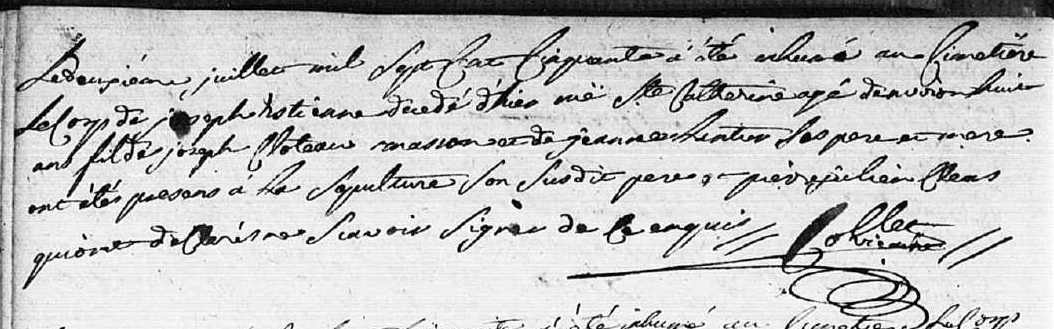 Le deuxiéme juillet mil Sept Cent Cinquante á été inhumé au Cimetiére
Le Corp de joseph Estienne decedé d'hier ruë Ste Catherine agé denviron huit
ans fils de joseph masson et de jeanne ses pere et mere
ont étés presens á La Sepulture Son Susdit pere et pierre julien
qui ont declaré ne Scavoir Signer de Ce enquis // Collet
vicaire //
été inhumé au Cimetiere Le Corps